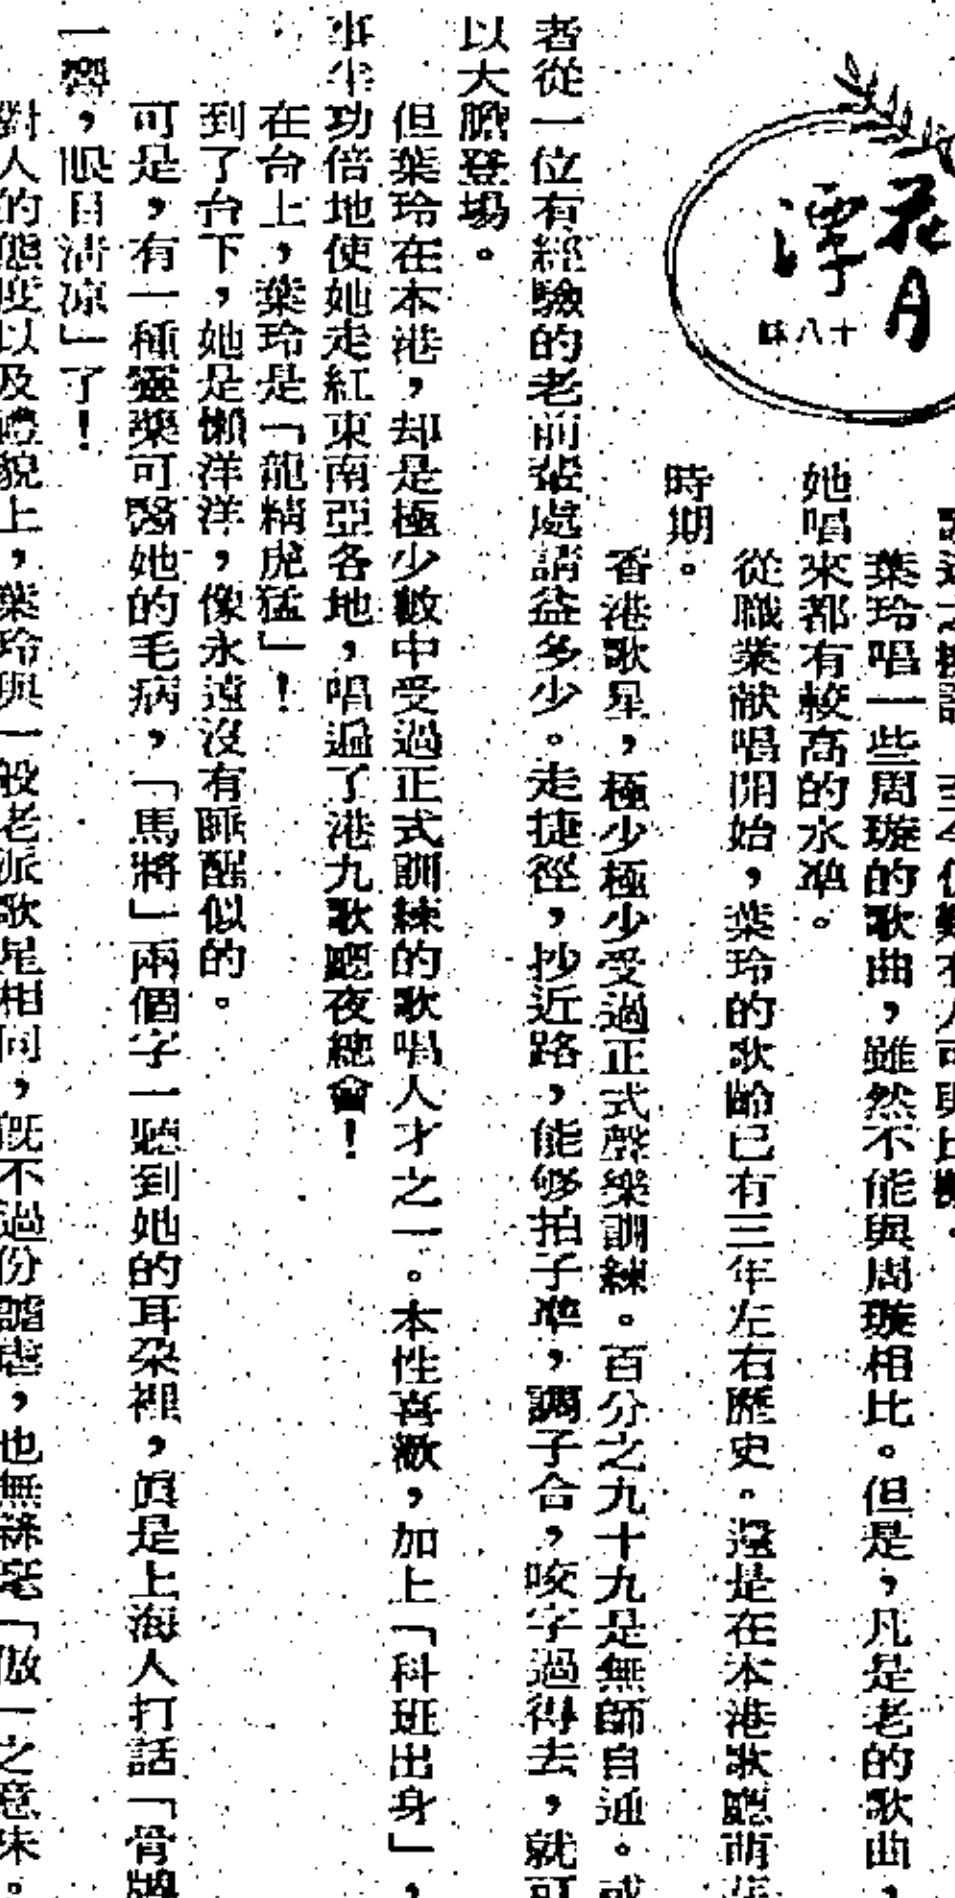 花月
潭
十八妹
葉玲唱一些周璇的歌曲，雖然不能與周璇相比。但是，凡是老的歌曲，
她唱來都有較高的水準。
從職業献唱開始，葉玲的歌齡已有三年左右歷史。還是在本港歌廳萌芽
時期。
香港歌星，極少極少受過正式聲樂訓練。百分之九十九是無師自通。或
者從一位有經驗的老前輩處請益多少。走捷徑，抄近路，能够拍子準，調子合，咬字過得去，就可
以大膽登場。
但葉玲在本港，却是極少數中受過正式訓練的歌唱人才之一。本性喜歌，加上「科班出身」，
事半功倍地使她走紅東南亞各地，唱遍了港九歌廳夜總會！
在台上，葉玲是「龍精虎猛」！
到了台下，她是懶洋洋，像永遠沒有睡醒似的。
可是，有一種靈藥可醫她的毛病，「馬將」兩個字一聽到她的耳朶裡，眞是上海人打話「骨牌
一響，眼目清凉」了！
對人的態度以及禮貌上，葉玲與一般老派歌星相同，旣不過份謟虐，也無絲毫「傲」之意味。